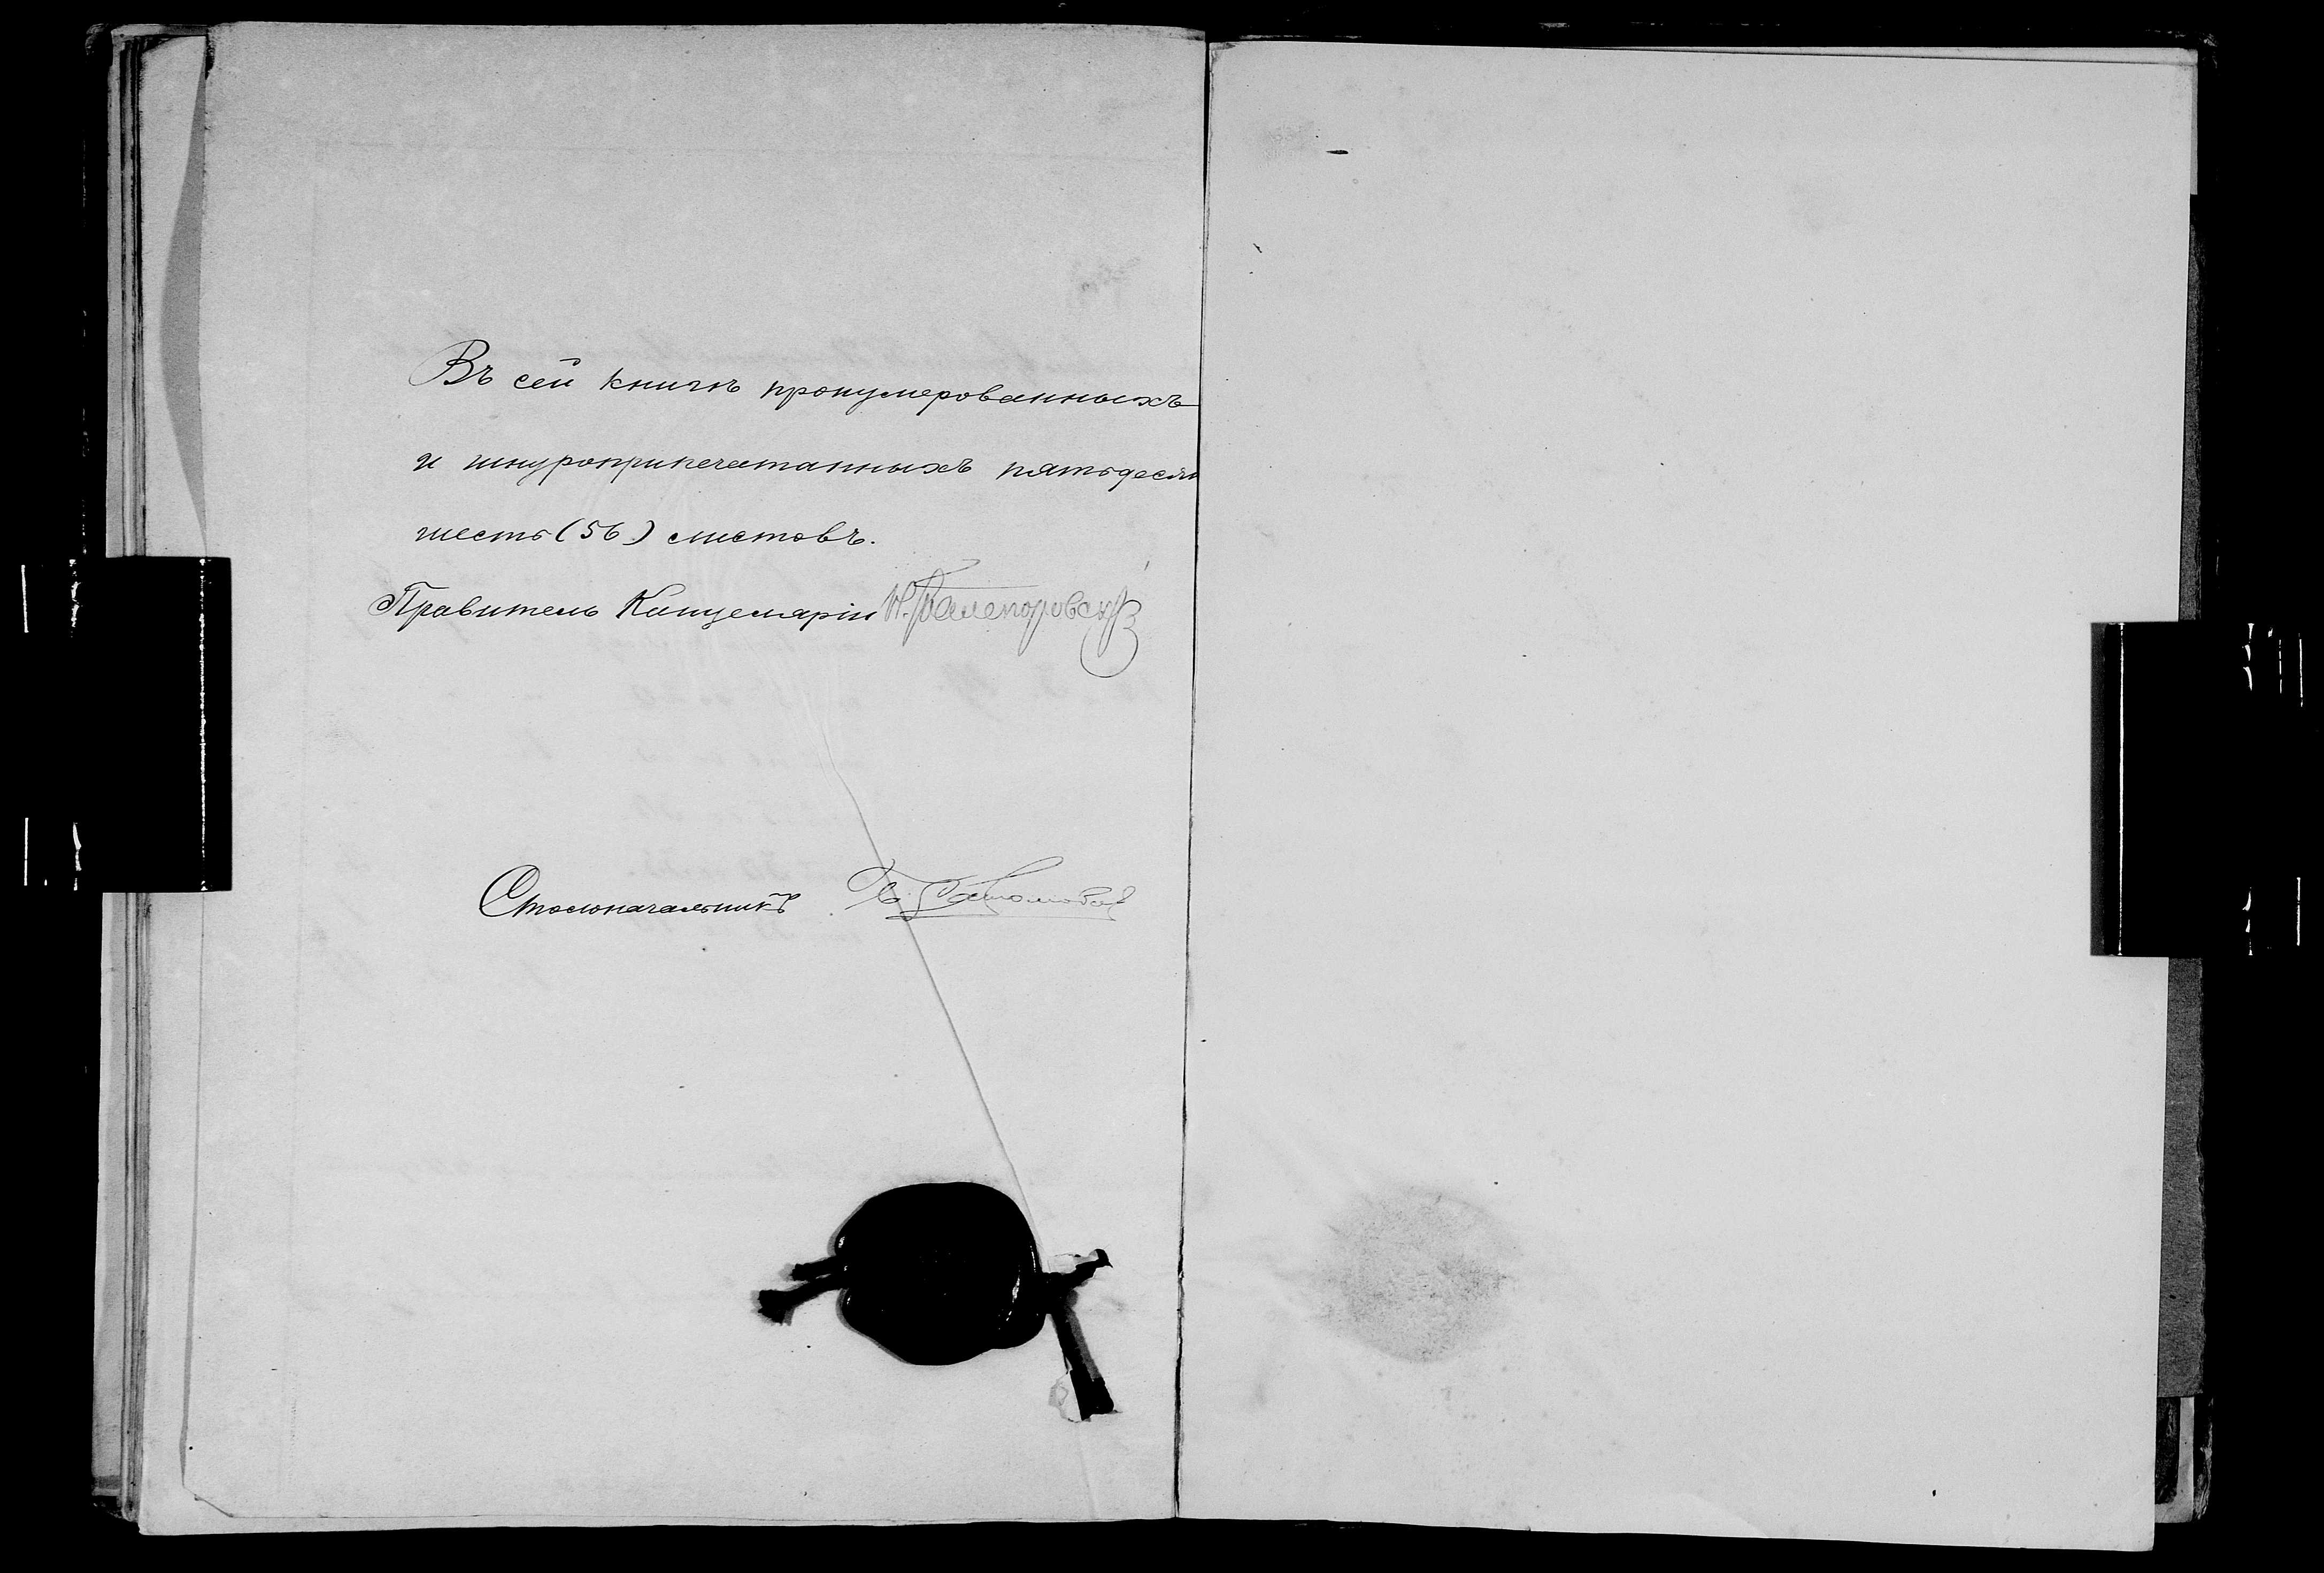 Въ сей книгѣ пронумерованныхъ
и шнуроприпечатанныхъ пятьдесят
шесть (56) листовъ.
Правитель Канцеляріи
Столоначальникъ